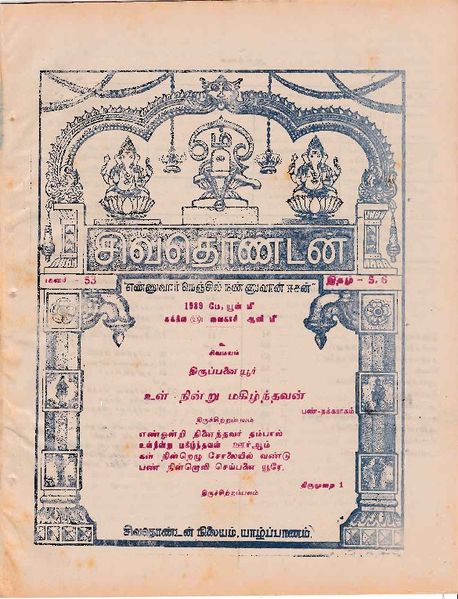 சிவதொண்டன்
மலர் - 53
இதழ் - 5, 6
"எண்ணுவார் நெஞ்சில் நண்ணுவான் ஈசன்"
1989 மே, யூன் மீ
வைகாசி ஆனி மீ
உ
சிவமயம்
திருப்பனையூர்
உள் நின்று மகிழ்ந்தவன்
பண்-தக்கராகம்
திருச்சிற்றம்பலம்
எண்ஒன்றி நினைத்தவர் தம்பால்
உள்நின்று மகிழ்ந்தவன் ஊர்ஆம்
கள் நின்றெழு சோலையில் வண்டு
பண் நின்றொலி செய்பனை யூரே.
திருமுறை 1
திருச்சிற்றம்பலம்
சிவதொண்டன் நிலையம், யாழ்ப்பாணம்.